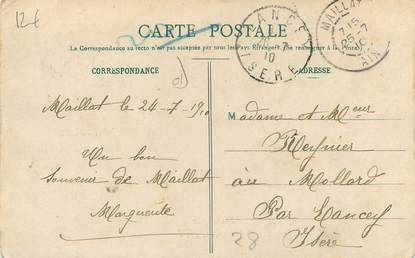 12€
CARTE POSTALE
La Correspondance au recto n'est pas acceptée par tous les Pays Étrangers. (Se renseigner à la Poste).
CORRESPONDANCE
ADRESSE
LANCEY
10
ISERE
MAILLAT
7 15
25-7
AIN
Maillat le 24-7-1910
Un bon
souvenir de Maillat
Marguerite
Madame et Meur
Reynier
au Mollard
Par Lancey
Isère
28